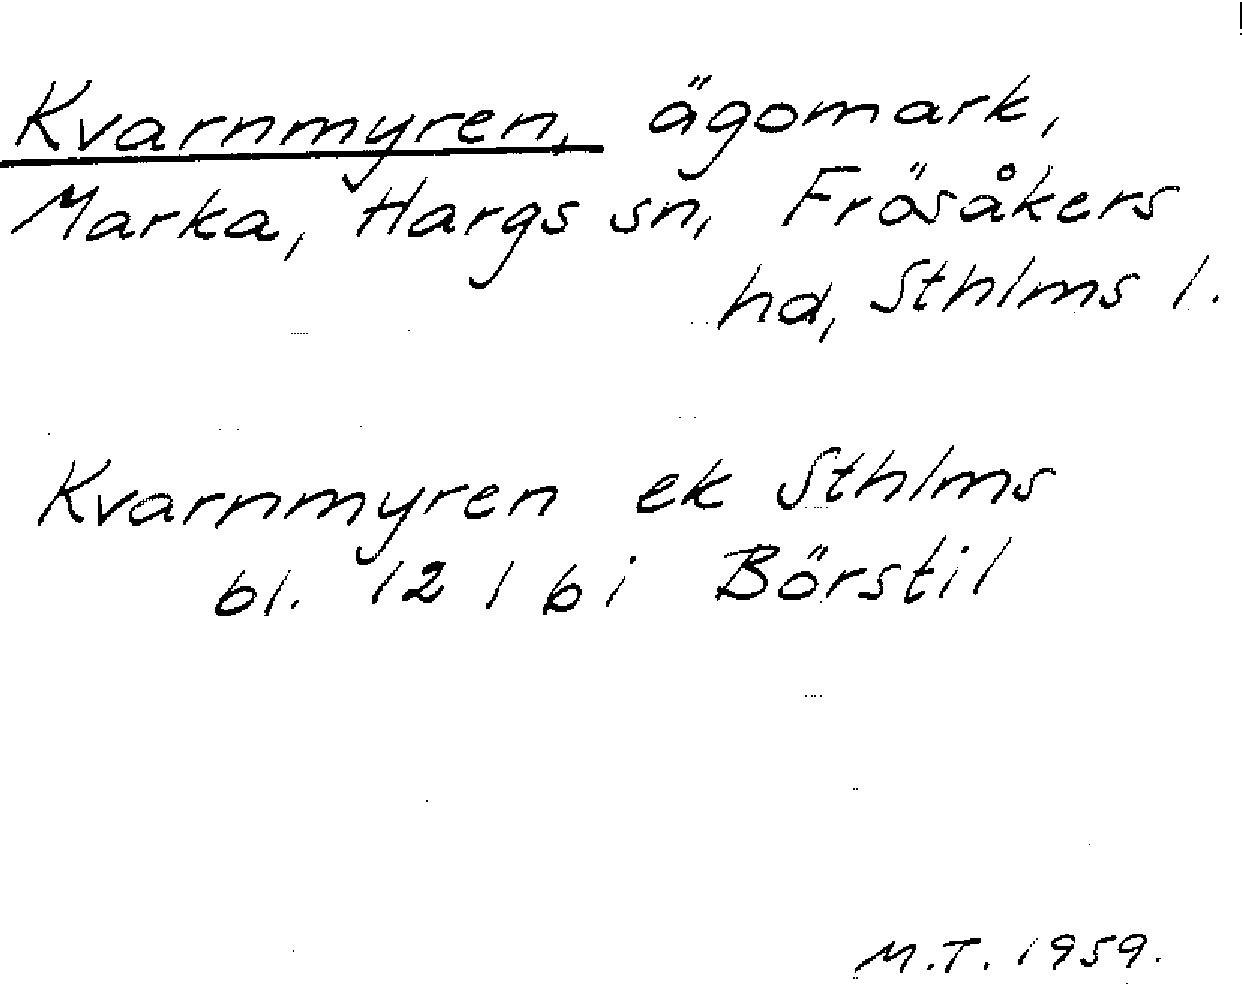 Kvarnmyren, ägomark,
Marka, Hargs sn, Frösåkers
hd, Sthlms l.
Kvarnmyren ek Sthlms
bl. 12 l b i Börstil
M.T. 1959.